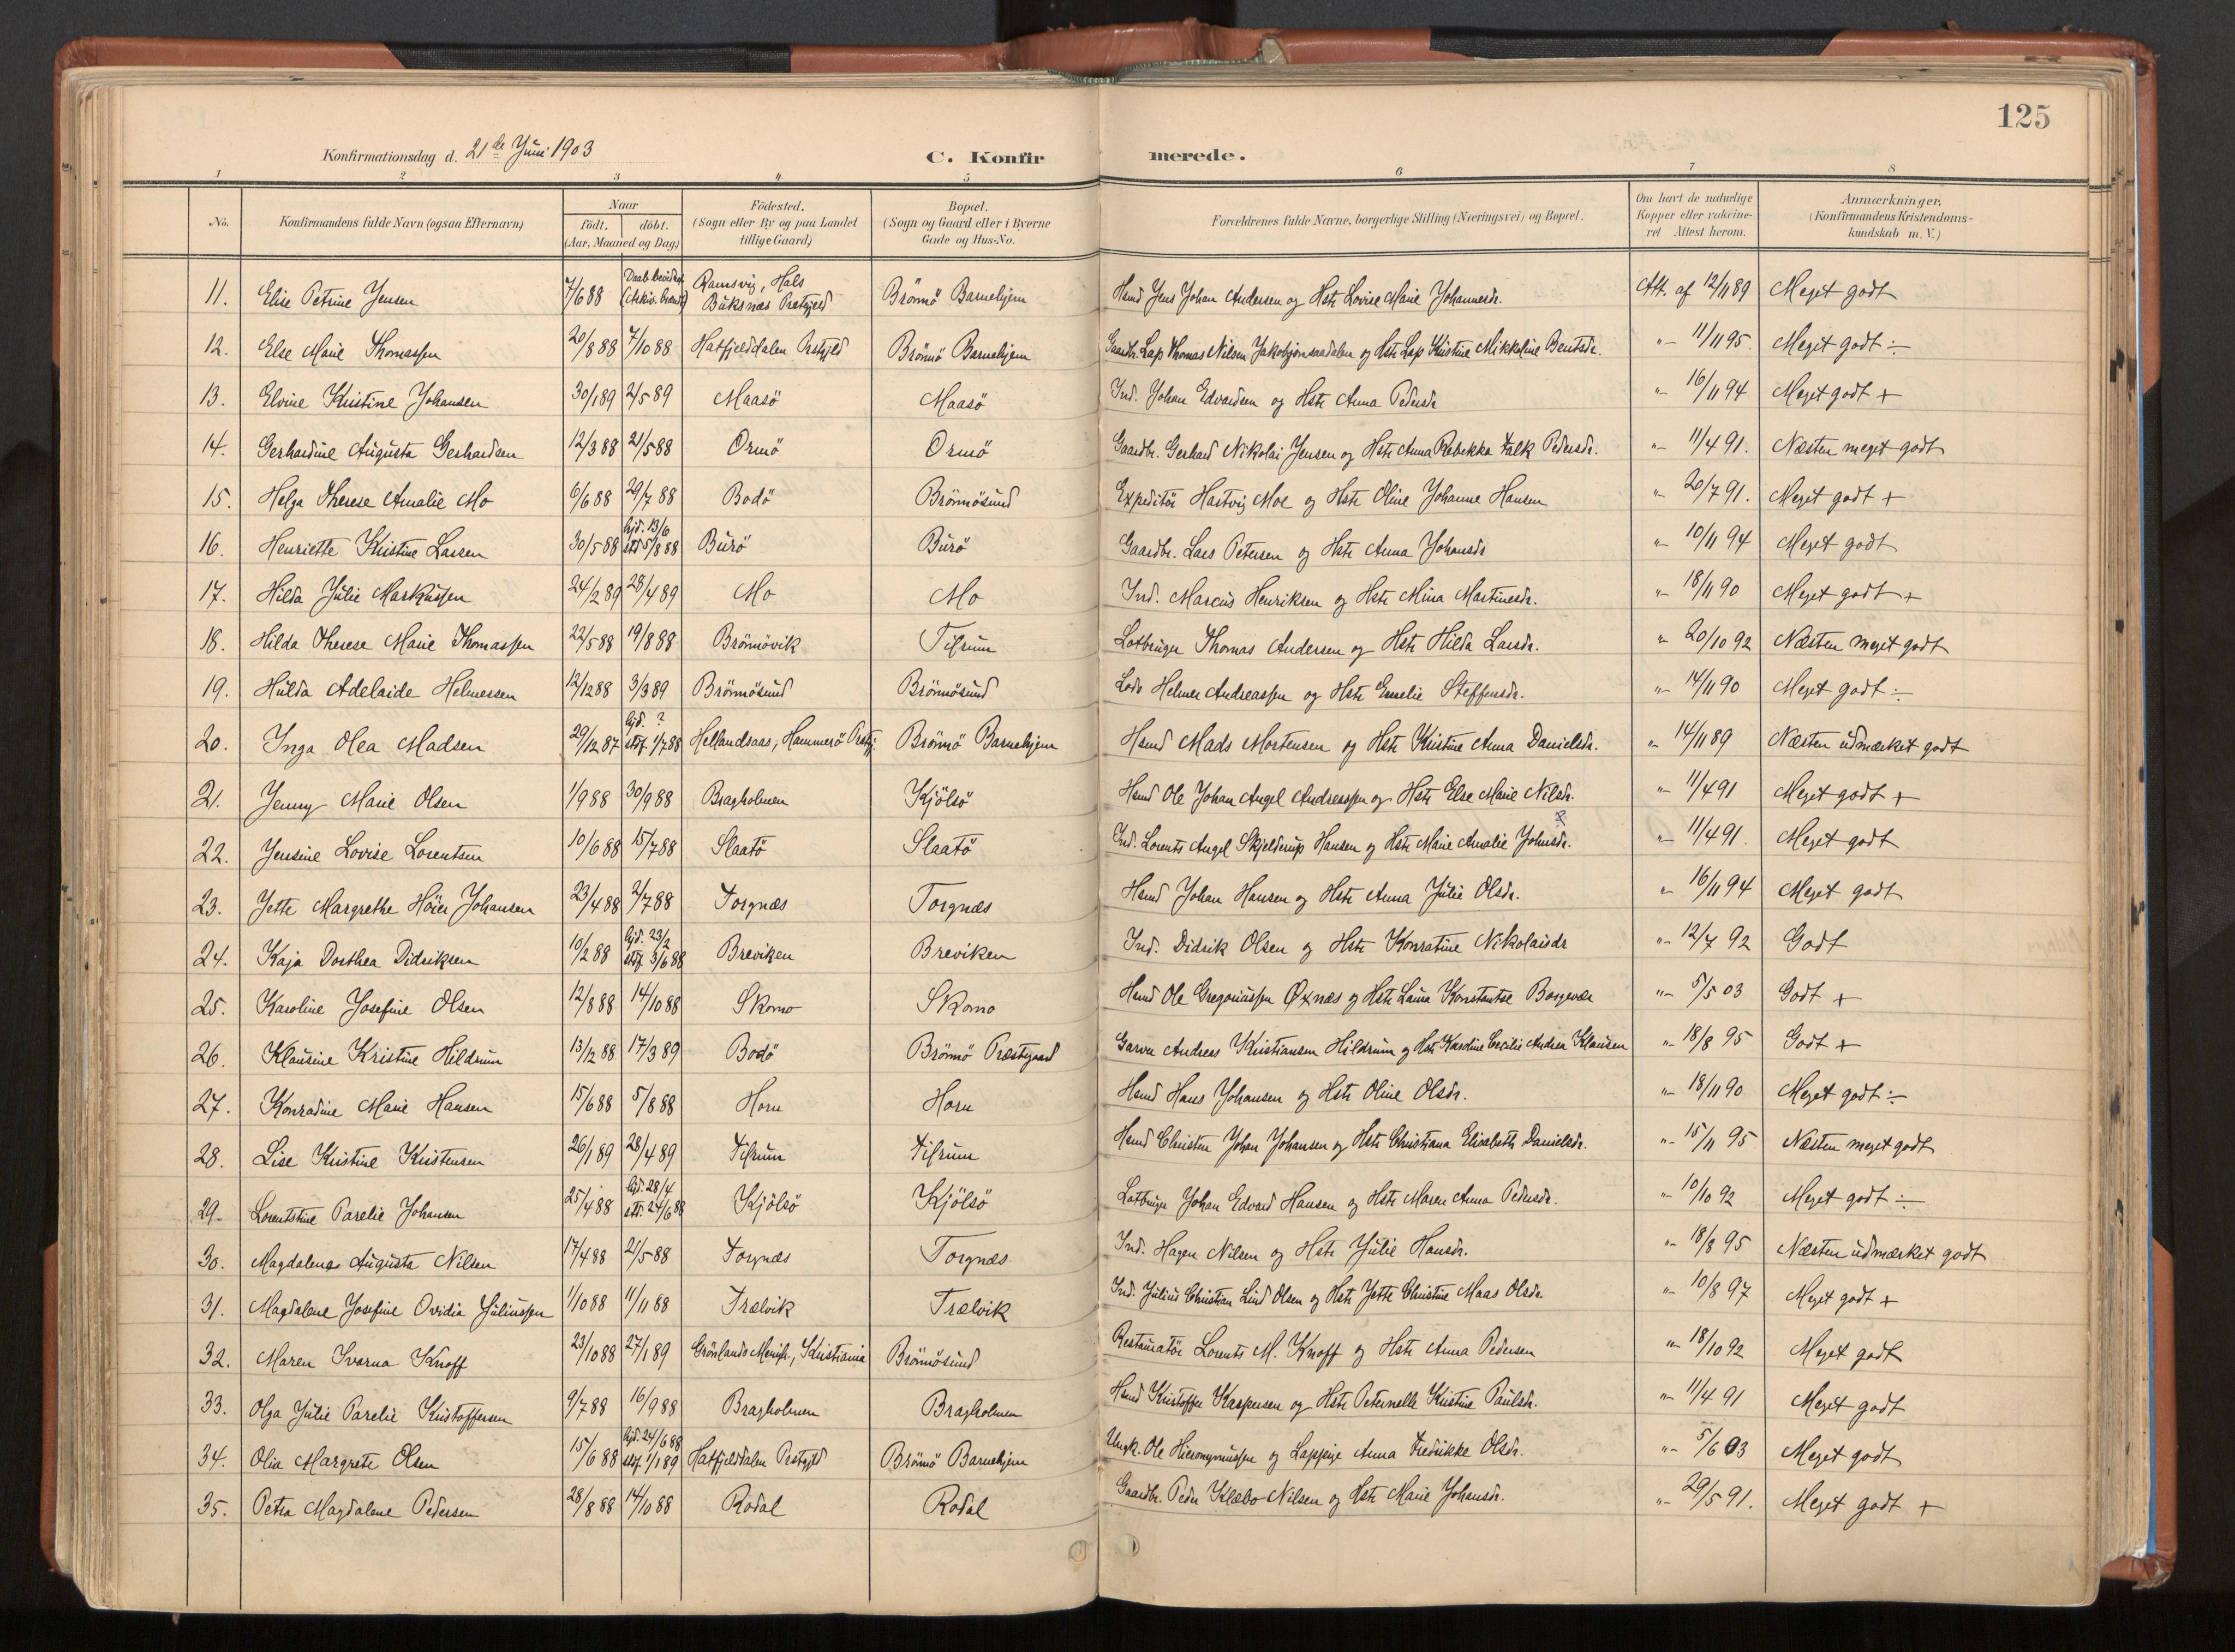 125
Konfirmationsdag d. 21de Juni 1903 C. Konfirmerede.
1 2 3 4 5 6 7 8
No. Konfirmandens fulde Navn (ogsaa Efternavn) Naar født. døbt. (Aar, Maaned og Dag) Fødested. (Sogn eller By og paa Landet tillige Gaard) Bopæl. (Sogn og Gaard eller i Byerne Gade og Hus-No. Forældrenes fulde Navne, borgerlige Stilling (Næringsvei) og Bopæl. Om havt de naturlige Kopper eller vakcineret Attest herom. Anmærkninger. (Konfirmandens Kristendomskundskab m. V.)
11. Elise Petrine Jensen 7/6 88 Ramsvig, Hals Buksnæs Prstgjeld Brönnö Barnehjem Hsmd Jens Johan Andersen og Hstr Lovise Marie Johannesdr. Att. af 12/11 89 Meget godt
12. Else Marie Thomassen 20/8 88 7/10 88 Hatfjelddalen Prstgjld Brönnö Barnehjem Gaardbr. Lap Thomas Nilsen og Hstr Lap Kristine Mikkeline Bentsdr. "- 11/11 95. Meget godt ÷
13. Elvine Kristine Johansen 30/1 89 2/5 89 Maasö Maasö Ind. Johan Edvardsen og Hstr Anna Pedersdr "- 16/11 94 Meget godt +
14. Gerhardine Augusta Gerhardsen 12/3 88 21/5 88 Ormö Ormö Gaardbr. Gerhard Nikolai Jensen og Hstr Anna Rebekka Falk Pedersdr. "- 11/4 91. Næsten meget godt
15. Helga Therese Amalie Mo 6/6 88 29/7 88 Bodö Brönnösund Expeditör Hartvig Moe og Hstr Oline Johanne Hansen "- 20/7 91. Meget godt +
16. Henriette Kristine Larsen 30/5 88 hjd. 13/6 stf 5/8 88 Burö Burö Gaardbr. Lars Petersen og Hstr Anna Johansdr "- 10/11 94 Meget godt
17. Hilda Julie Markussen 24/2 89 28/4 89 Mo Mo Ind. Marcus Henriksen og Hstr Mina Martinusdr. "- 18/11 90 Meget godt +
18. Hilda Therese Marie Thomassen 22/5 88 19/8 88 Brönnövik Tilrum Lotbruger Thomas Andersen og Hstr Hilda Larsdr. "- 20/10 92 Næsten meget godt
19. Hulda Adelaide Helmersen 12/12 88 3/3 89 Brönnösund Brönnösund Lods Helmer Andreassen og Hstr Emelie Steffensdr. "- 14/11 90 Meget godt ÷
20. Inga Olea Madsen 29/12 87 hjd. ? stf. 1/7 88 Hellandsaas, Hammerö Prstgj. Brönnö Barnehjem Hsmd Mads Mortensen og Hstr Kristine Anna Danielsdr. "- 14/11 89 Næsten udmærket godt
21. Jenny Marie Olsen 1/9 88 30/9 88 Bragholmen Kjölsö Hsmd Ole Johan Angel Andreassen og Hstr Else Marie Nilsdr. "- 11/4 91 Meget godt +
22. Jensine Lovise Lorentsen 10/6 88 15/7 88 Slaatö Slaatö Ind. Lorents Angel Skjelderup Hansen og Hstr Marie Amalie Johnsdr. "- 11/4 91. Meget godt
23. Jette Margrethe Höier Johansen 23/4 88 2/7 88 Torgnæs Torgnæs Hsmd Johan Hansen og Hstr Anna Julie Olsdr. "- 16/11 94 Meget godt
24. Kaja Dorthea Didriksen 10/2 88 hjd. 23/2 stf. 3/6 88 Breviken Breviken Ind. Didrik Olsen og Hstr Konratine Nikolaisdr "- 12/7 92 Godt
25. Karoline Josefine Olsen 12/8 88 14/10 88 Skomo Skomo Hsmd Ole Gregoriussen Øxnæs og Hstr Laura Konstantse Borgevær "- 5/5 03 Godt +
26. Klausine Kristine Hildrum 13/12 88 17/3 89 Bodö Brönnö Præstegaard Garver Andreas Kristiansen Hildrum og Hstr Karoline Cecilie Andrea Klausen "- 18/8 95 Godt +
27. Konradine Marie Hansen 15/6 88 5/8 88 Horn Horn Hsmd Hans Johansen og Hstr Oline Olsdr. "- 18/11 90 Meget godt ÷
28. Lise Kristine Kristensen 26/1 89 28/4 89 Tilrum Tilrum Hsmd Christen Johan Johansen og Hstr Christiana Elisabeth Danielsdr. "- 15/11 95 Næsten meget godt
29. Lorentstine Parelie Johansen 25/4 88 hjd. 28/4 stf. 24/6 88 Kjölsö Kjölsö Lotbruger Johan Edvard Hansen og Hstr Maren Anna Pedersdr. "- 10/10 92 Meget godt ÷
30. Magdalena Augusta Nilsen 17/4 88 21/5 88 Torgnæs Torgnæs Ind. Hagen Nilsen og Hstr Julie Hansdr. "- 18/8 95 Næsten udmærket godt
31. Magdalene Josefine Ovidia Juliussen 1/10 88 11/11 88 Trælvik Trælvik Ind. Julius Christian Lind Olsen og Hstr Jette Christine Maas Olsdr "- 10/8 97 Meget godt +
32. Maren Ivarna Knoff 23/10 88 27/1 89 Grönlands Menigh., Kristiania Brönnösund Restauratör Lorents M. Knoff og Hstr Anna Pedersen "- 18/10 92 Meget godt
33. Olga Julie Parelie Kristoffersen 9/7 88 16/9 88 Bragholmen Bragholmen Hsmd Kristoffer Kaspersen og Hstr Peternelle Kristine Paulsdr. "- 11/4 91 Meget godt
34. Olia Margrete Olsen 15/6 88 hjd. 24/6 88 stf. 1/1 89 Hatfjelddalen Prstgjld Brönnö Barnehjem Ungk. Ole Hieronymussen og Lappige Anna Fredrikke Olsdr. "- 5/6 03 Meget godt
35. Petra Magdalene Pedersen 28/8 88 14/10 88 Rodal Rodal Gaardbr. Peder Klæbo Nilsen og Hstr Marie Johansdr. "- 29/5 91. Meget godt +